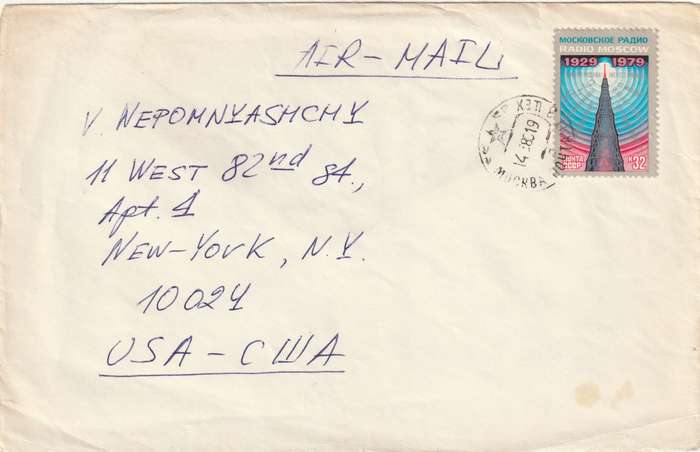 AIR-MAIL
МОСКОВСКОЕ РАДИО
RADIO MOSCOW
1929 1979
ПОЧТА
СССР
К 32
МОСКВА
V. NEPOMNYASHCHY
11 WEST 82nd St.,
Apt. 1
NEW-YORK, N.Y.
10024
USA-США